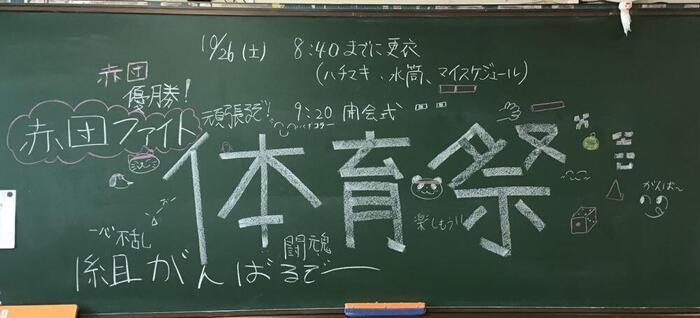 10/26(土) 8:40までに更衣
(ハチマキ、水筒、マイスケジュール)
赤団
優勝!
頑張るぞ!
9:20 開会式
赤団ファイト
体育祭
楽しもう!!
がんば〜
一心不乱
闘魂
1組がんばるぞー